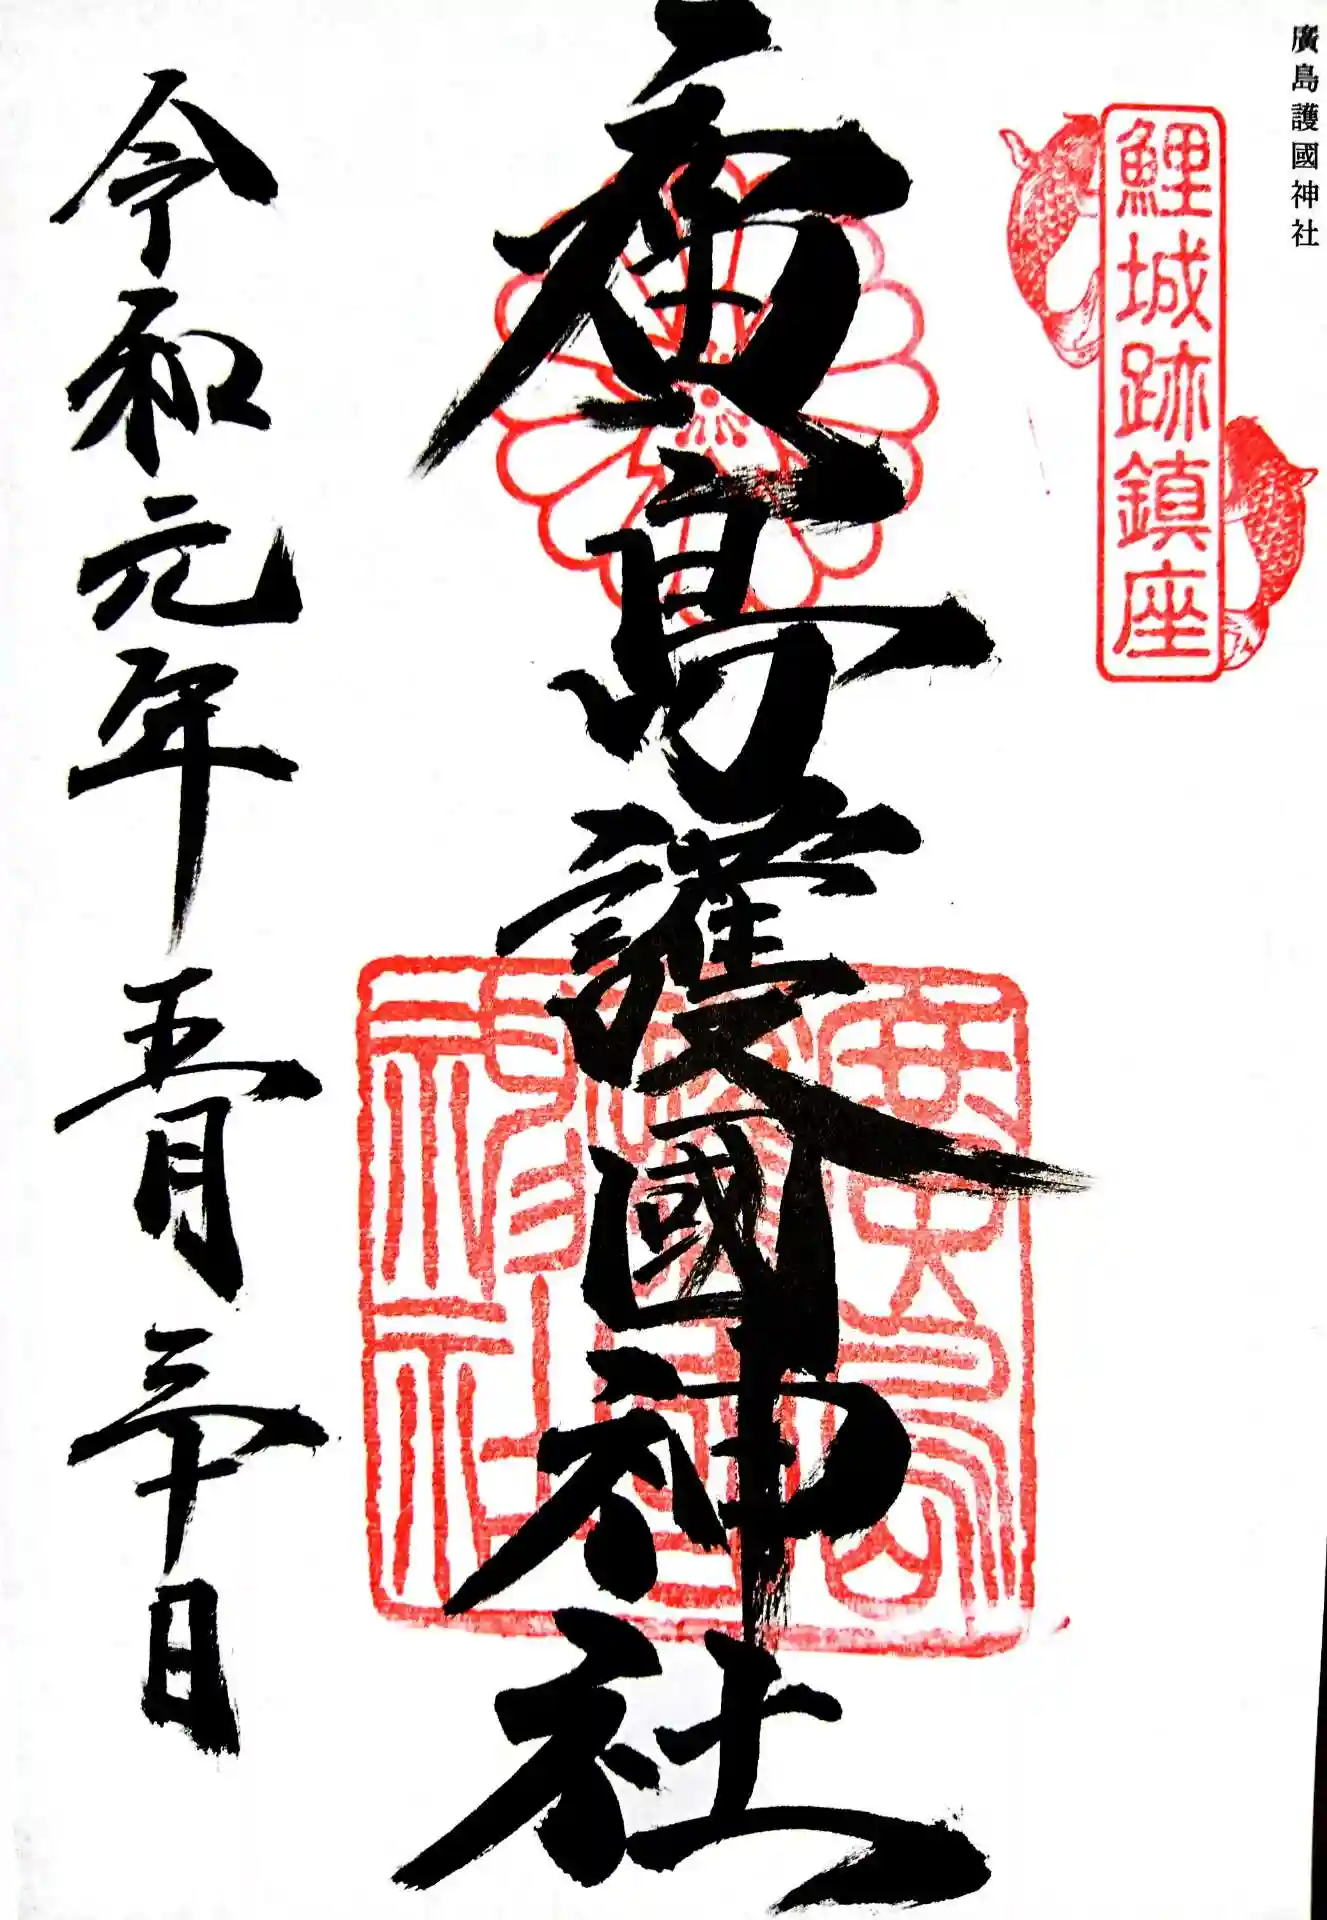 廣島護國神社
鯉城跡鎮座
廣島護國神社
廣島護國神社
令和元年五月三十日